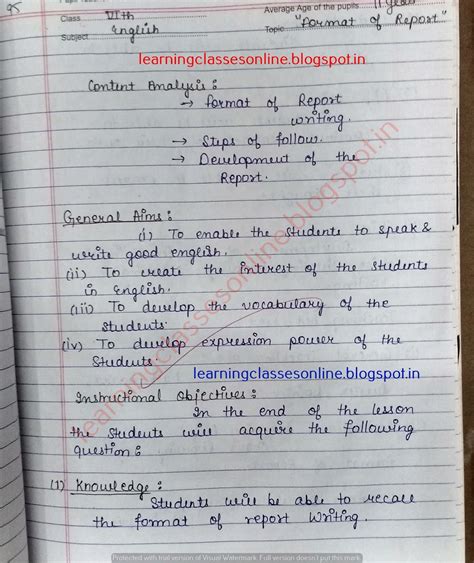 95
Class VIth Average Age of the pupils 11 years
Subject English Topic "Format of Report"
learningclassesonline.blogspot.in
Content Analysis :
→ Format of Report
writing.
→ Steps of follow.
→ Development of the
Report.
General Aims :
(i) To enable the students to speak &
write good english.
(ii) To create the interest of the students
in English.
(iii) To develop the vocabulary of the
students.
(iv) To develop expression power of the
Students.
learningclassesonline.blogspot.in
Instructional objectives :
In the end of the lesson
the students will acquire the following
question :
(1) Knowledge :
Students will be able to recall
the format of report writing.
learningclassesonline.blogspot.in
Protected with trial version of Visual Watermark. Full version doesn't put this mark.